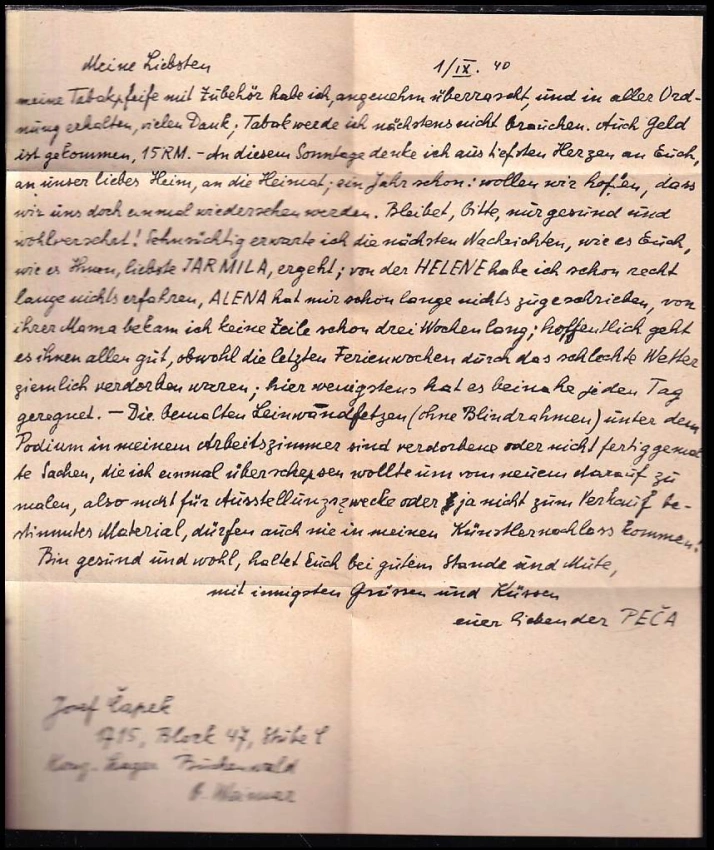 Meine Liebsten 1/IX. 40
meine Tabakpfeife mit Zubehör habe ich, angenehm überrascht, und in aller Ord-
nung erhalten, vielen Dank; Tabak werde ich nächstens nicht brauchen. Auch Geld
ist gekommen, 15 RM. – An diesem Sonntage denke ich aus tiefsten Herzen an Euch,
an unser liebes Heim, an die Heimat; ein Jahr schon: wollen wir hoffen, dass
wir uns doch einmal wiedersehen werden. Bleibet, bitte, nur gesund und
wohlversehrt! Sehnsüchtig erwarte ich die nächsten Nachrichten, wie es Euch,
wie es Ihnen, liebste JARMILA, ergeht; von der HELENE habe ich schon recht
lange nichts erfahren, ALENA hat mir schon lange nichts zugeschrieben, von
ihrer Mama bekam ich keine Zeile schon drei Wochen lang; hoffentlich geht
es ihnen allen gut, obwohl die letzten Ferienwochen durch das schlechte Wetter
ziemlich verdorben waren; hier wenigstens hat es beinahe jeden Tag
geregnet. – Die bemalten Leinwandfetzen (ohne Blindrahmen) unter dem
Podium in meinem Arbeitszimmer sind verdorbene oder nicht fertig gemal
te Sachen, die ich einmal überschepsen wollte um von neuem darauf zu
malen, also nicht für Ausstellungszwecke oder ja nicht zum Verkauf be-
stimmtes Material, dürfen auch nie in meinen Künstlernachlass kommen!
Bin gesund und wohl, haltet Euch bei gutem Stande und Mute,
mit innigsten Grüssen und Küssen
euer liebender PEČA
Josef Čapek
1715, Block 47, Stube
Konz. Lager Buchenwald
b. Weimar